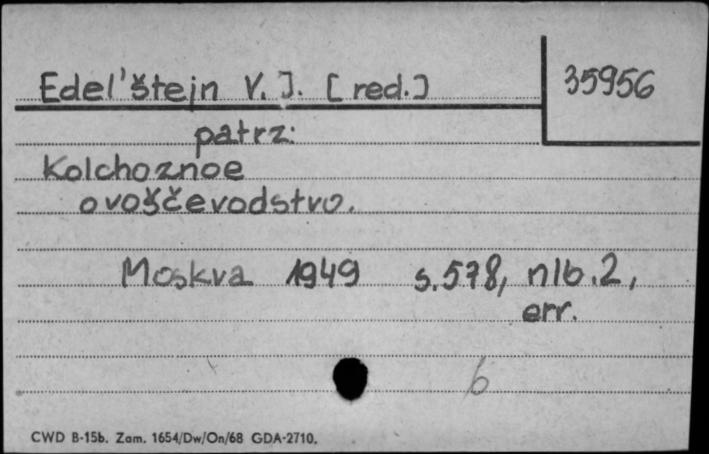 Edel'štejn V. J. [red.]
35956
patrz:
Kolchoznoe
ovoščevodstvo.
Moskva 1949 s. 578, nlb. 2,
err.
b
CWD B-15b. Zam. 1654/Dw/On/68 GDA-2710.